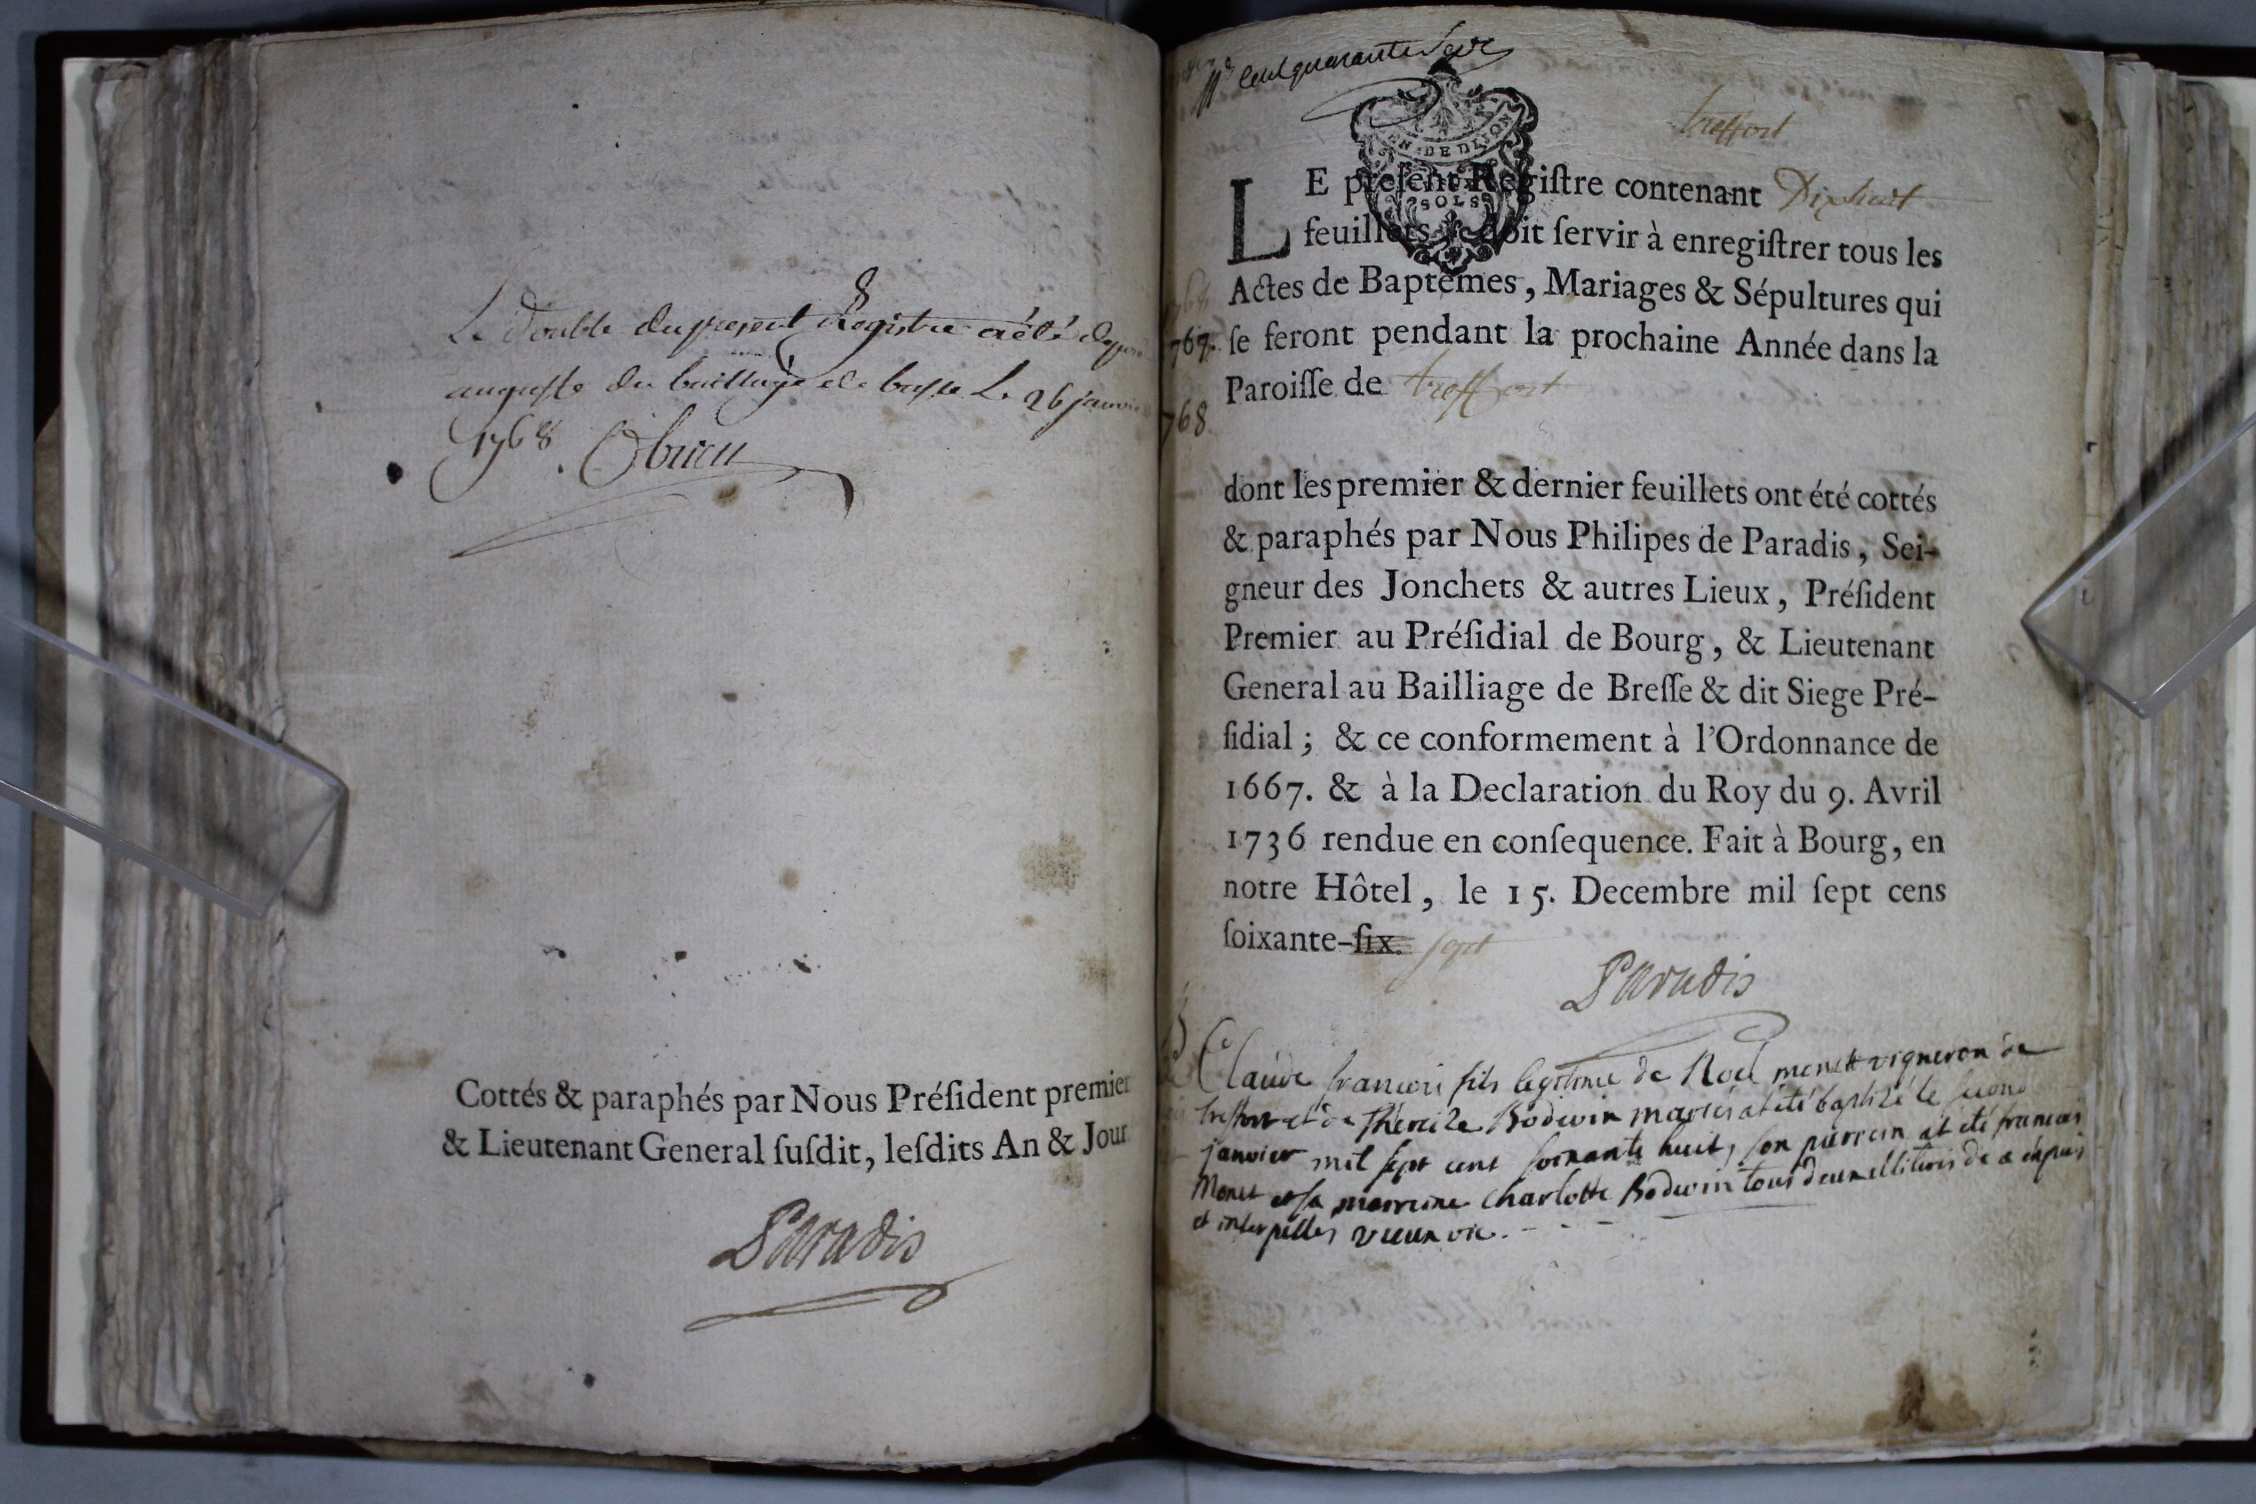 Le double du present Registre a été deppo
au greffe du bailliage de bresse Le 26 janvie
1768. Obrieu
Cottés & paraphés par Nous Préſident premier
& Lieutenant General ſuſdit, leſdits An & Jour
Paradis
cent quarante
GEN DE DIJON
SOLS
treffort
LE preſent Regiſtre contenant Dixhuit
feuillets doit ſervir à enregiſtrer tous les
Actes de Baptêmes, Mariages & Sépultures qui
767. ſe feront pendant la prochaine Année dans la
Paroiſſe de treffort
768
dont les premier & dernier feuillets ont été cottés
& paraphés par Nous Philipes de Paradis, Sei-
gneur des Jonchets & autres Lieux, Préſident
Premier au Préſidial de Bourg, & Lieutenant
General au Bailliage de Breſſe & dit Siege Pré-
ſidial; & ce conformement à l'Ordonnance de
1667. & à la Declaration du Roy du 9. Avril
1736 rendue en conſequence. Fait à Bourg, en
notre Hôtel, le 15. Decembre mil ſept cens
ſoixante-ſix. sept
Paradis
Claude francois fils legitime de Noel monet vigneron de
treffort et de Thereize Bodwin mariés at été baptizé le second
janvier mil sept cent soixante huit, son parrein at été francois
Monet et sa marreine charlotte Bodwin tous deux illiteris de ce enquis
et interpellés